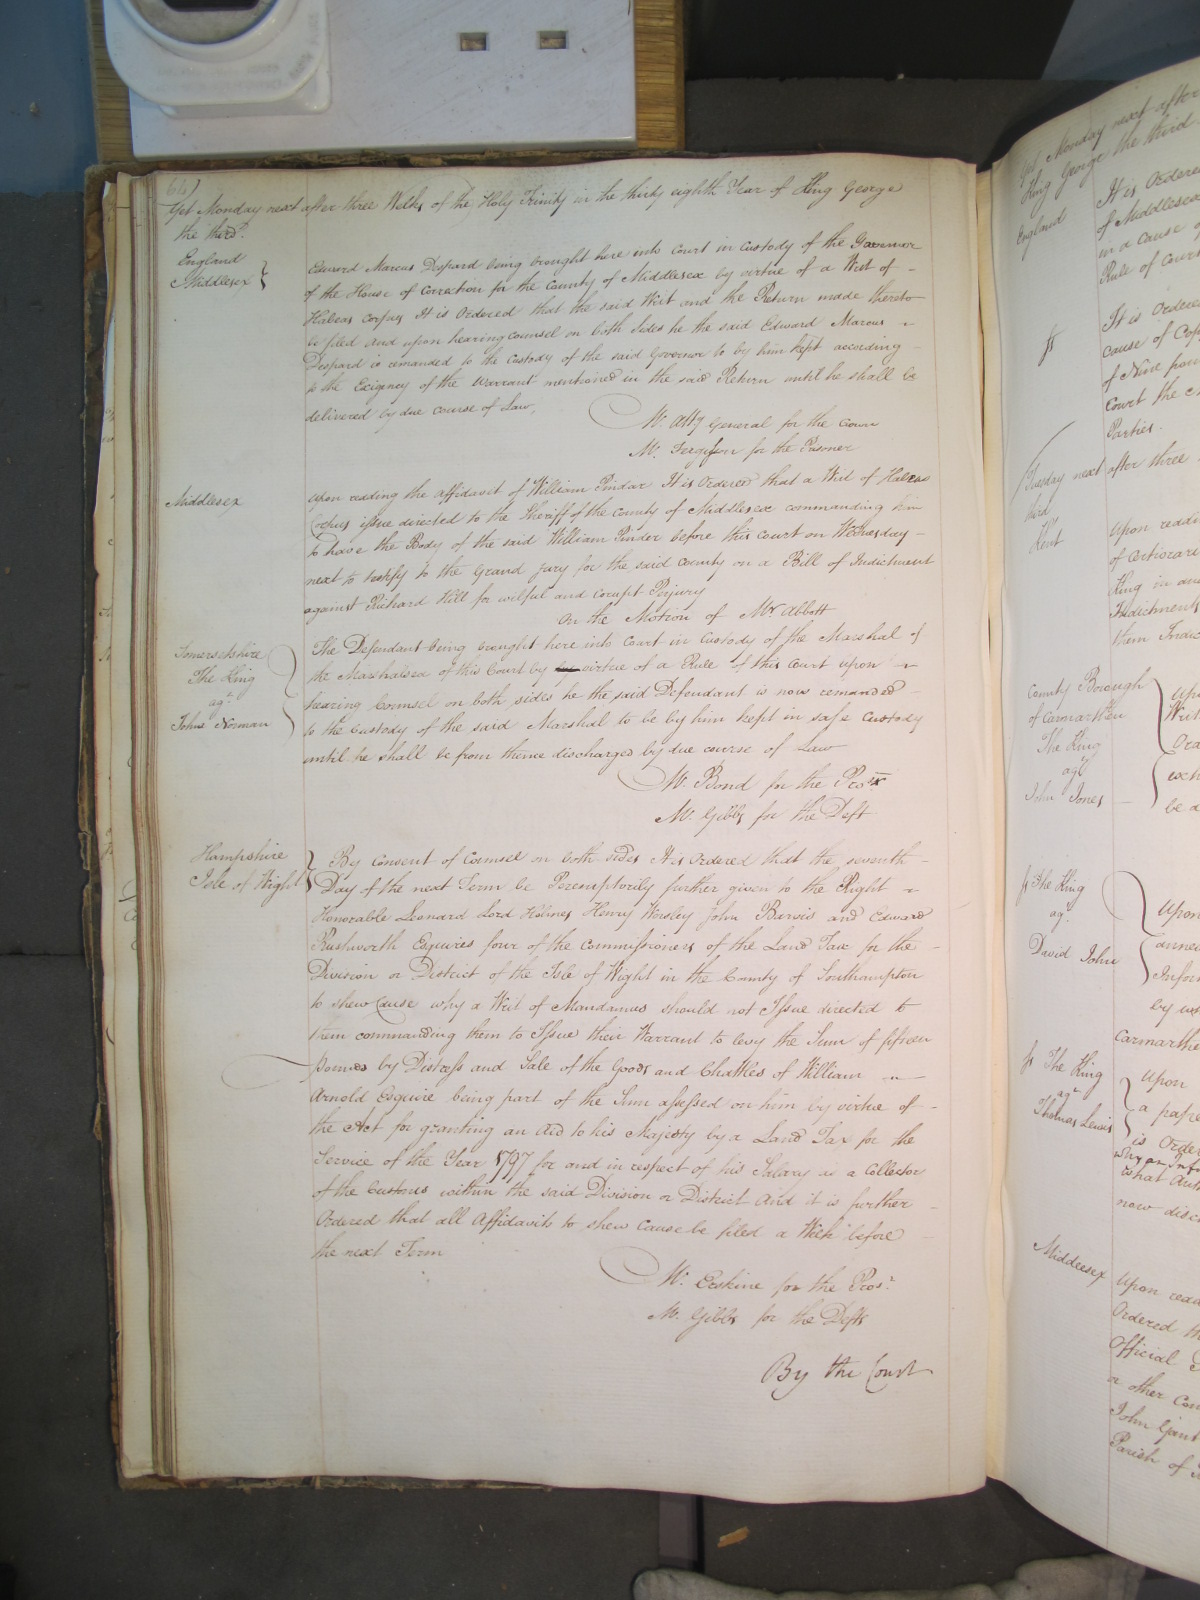 641
Yet Monday next after three Weeks of the Holy Trinity in the thirty eighth Year of King George
the third.
England
Middlesex
Edward Marcus Despard being brought here into Court in Custody of the Governor
of the House of Correction for the County of Middlesex by virtue of a Writ of
Habeas Corpus It is Ordered that the said Writ and the Return made thereto
be filed And upon hearing counsel on both sides he the said Edward Marcus
Despard is remanded to the Custody of the said Governor to by him kept according
to the Exigency of the warrant mentioned in the said Return until he shall be
delivered by due course of Law,
Mr. Atty General for the Crown
Mr. Fergusson for the Prisoner
Middlesex
Upon reading the affidavit of William Pindar It is Ordered that a Writ of Habeas
Corpus issue directed to the Sheriff of the County of Middlesex commanding him
to have the Body of the said William Pinder before this Court on Wednesday
next to testify to the Grand Jury for the said County on a Bill of Indictment
against Richard Hill for wilful and corrupt Perjury
On the Motion of Mr Abbott
Somersetshire
The King
agt
John Norman
The Defendant being brought here into Court in Custody of the Marshal of
the Marshalsea of this Court by virtue of a Rule of this Court upon
hearing Counsel on both sides he the said Defendant is now remanded
to the Custody of the said Marshal to be by him kept in safe Custody
until he shall be from thence discharged by due course of Law
Mr. Bond for the Prosr
Mr. Gibbs for the Deft
Hampshire
Isle of Wight
By Consent of Counsel on both sides It is Ordered that the seventh
Day of the next Term be Peremptorily further given to the Right
Honorable Leonard Lord Holmes Henry Worsley John Barwis and Edward
Rushworth Esquires four of the Commissioners of the Land Tax for the
Division or District of the Isle of Wight in the County of Southampton
to shew Cause why a Writ of Mandamus should not Issue directed to
them commanding them to Issue their Warrant to levy the Sum of fifteen
pounds by Distress and Sale of the Goods and Chattles of William
Arnold Esquire being part of the Sum assessed on him by virtue of
the Act for granting an Aid to his Majesty by a Land Tax for the
Service of the Year 1797 for and in respect of his Salary as a Collector
of the Customs within the said Division or District And it is further
Ordered that all Affidavits to shew Cause be filed a Week before
the next Term
Mr. Erskine for the Prosr
Mr. Gibbs for the Defts
By the Court
Yet Monday next after
King George the third
England
It is Ordered
of Middlesex
in a cause
Rule of Court
It is Ordered
cause of
of Nine
Court the
Parties.
Tuesday next after three
third
Kent
Upon
of Certiorari
King in
Indictments
them
County Borough
of Carmarthen
The King
agt
John Jones
Upon
Writ
be a
The King
agt
David John
Upon
by
Carmarthe
The King
agt
Thomas Lewis
Upon
a pape
is Orde
what
now
Middlesex
Upon
Ordered th
Official
or other
John
Parish of